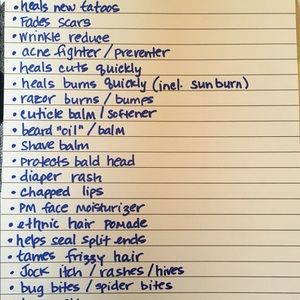 • heals new tatoos
• Fades scars
• wrinkle reduce
• acne fighter/preventer
• heals cuts quickly
• heals burns quickly (incl. sunburn)
• razor burns/bumps
• cuticle balm/softener
• beard "oil"/balm
• shave balm
• protects bald head
• diaper rash
• chapped lips
• PM face moisturizer
• ethnic hair pomade
• helps seal split ends
• tames frizzy hair
• Jock itch/rashes/hives
• bug bites/spider bites